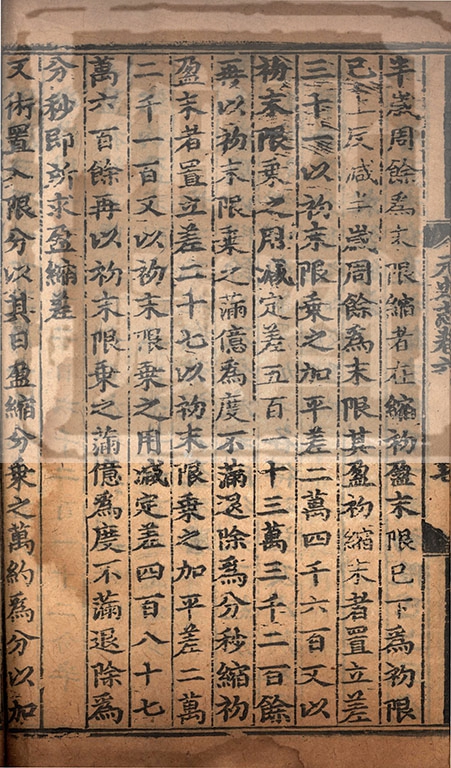 元史志卷六
半歲周餘爲末限縮者在縮初盈末限已下爲初限
已上反减半歲周餘爲末限其盈初縮末者置立差
三十一以初末限乘之加平差二萬四千六百又以
初末限乘之用减定差五百一十三萬三千二百餘
再以初末限乘之滿億爲度不滿退除爲分秒縮初
盈末者置立差二十七以初末限乘之加平差二萬
二千一百又以初末限乘之用减定差四百八十七
萬六百餘再以初末限乘之滿億爲度不滿退除爲
分秒即所求盈縮差
又術置入限分以其日盈縮分乘之萬約爲分以加